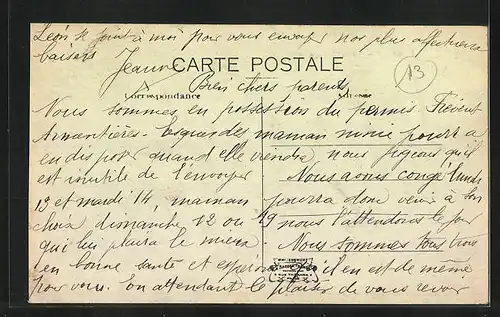 Léon se joint à moi pour vous envoyer nos plus affectueux
baisers
Jeanne
CARTE POSTALE
13
Bien chers parents,
Correspondance
Adresse
Nous sommes en possession du permis Frévent
Armentières - Esquerdes maman
pourra
en disposer quand elle viendra, nous jugeons qu'il
est inutile de l'envoyer
Nous avons congé lundi
13 et mardi 14, maman pourra donc venir à son
choix dimanche 12 ou 19 nous l'attendrons le jour
qui lui plaira le mieux. Nous sommes tous trois
en bonne santé et espérons qu'il en est de même
pour vous. en attendant le plaisir de vous revoir